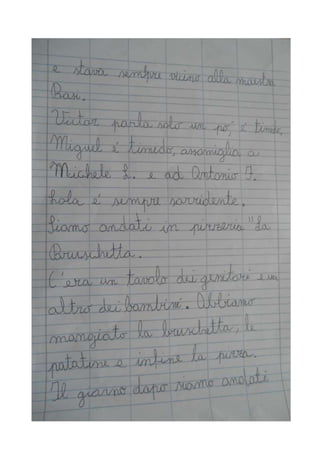 e stava sempre vicino alla maestra
Rosi.
Victor parla solo un pó, é timido,
Miguel é timido, assomiglia a
Michele L. e ad Antonio F.
Lola é sempre sorridente.
Siamo andati in pizzeria "La
Bruschetta.
C'era un tavolo dei genitori e un
altro dei bambini. Abbiamo
mangiato la bruschetta, le
patatine e infine la pizza.
Il giorno dopo siamo andati